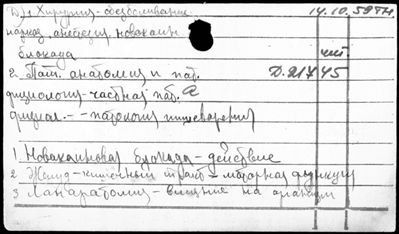 1) Хирургия - обезболивание 14.10.59 ТН.
наркоз, анестезия, новокаин.
блокада чит
2. Пат. анатомия и пат. Д.21745
физиология - частная пат.
физиол. - - патология пищеварения
1. Новокаиновая блокада - действие
2 Желуд-кишечный тракт - моторная функция
3 Лапаратомия - влияние на организм